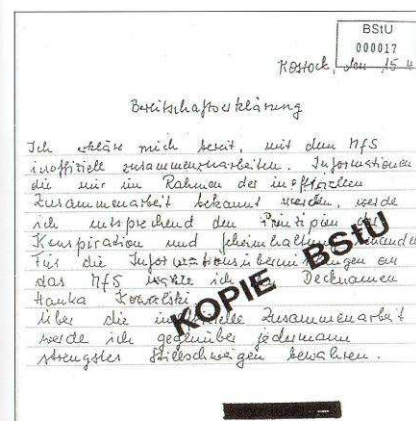 BStU
000017
Rostock, den 15.4
Bereitschaftserklärung
Ich erkläre mich bereit, mit dem MfS
inoffiziell zusammenzuarbeiten. Informationen
die mir im Rahmen der inoffiziellen
Zusammenarbeit bekannt werden, werde
ich entsprechend den Prinzipien der
Konspiration und Geheimhaltung behandel
Für die Informationsübermittlungen an
das MfS wähle ich den Decknamen
Hanka Kowalski.
Über die inoffizielle Zusammenarbeit
werde ich gegenüber jedermann
strengstes Stillschweigen bewahren.
KOPIE BStU